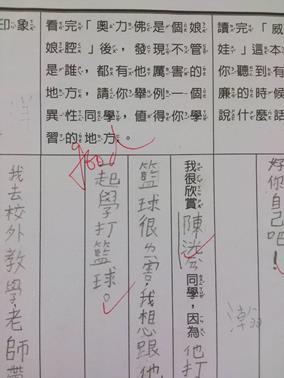 讀完「威
娃」這本
你聽到有
廉的時候
說什麼話
好你自己吧!
看完「奧力佛是個娘
娘腔」後,發現不管
是誰,都有他厲害的
地方,請你舉例一個
異性同學,值得你學
習的地方。
good
我很欣賞陳 同學,因為他打
籃球很ㄌ害,我想跟他
起學打籃球。
印象
我去校外教學,老師帶